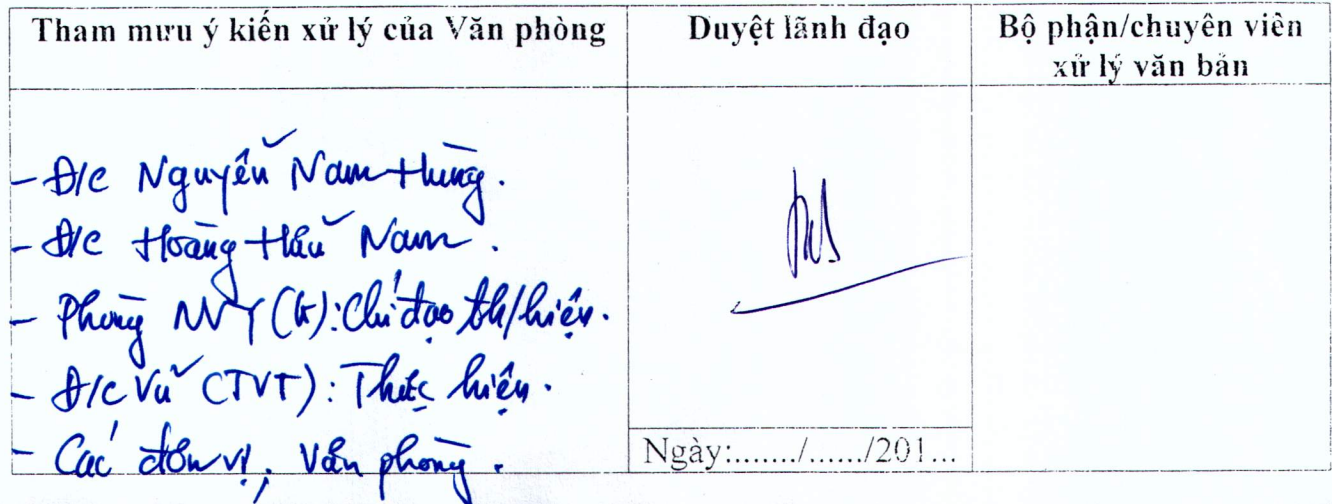 Tham mưu ý kiến xử lý của Văn phòng
Duyệt lãnh đạo
Bộ phận/chuyên viên
xử lý văn bản
- Đ/c Nguyễn Nam Hùng.
- Đ/c Hoàng Hữu Nam.
- Phòng NVY (k): Chỉ đạo th/hiện.
- Đ/c Vũ (TVT): Thực hiện.
- Các đơn vị, Văn phòng.
Ngày:......./....../201...